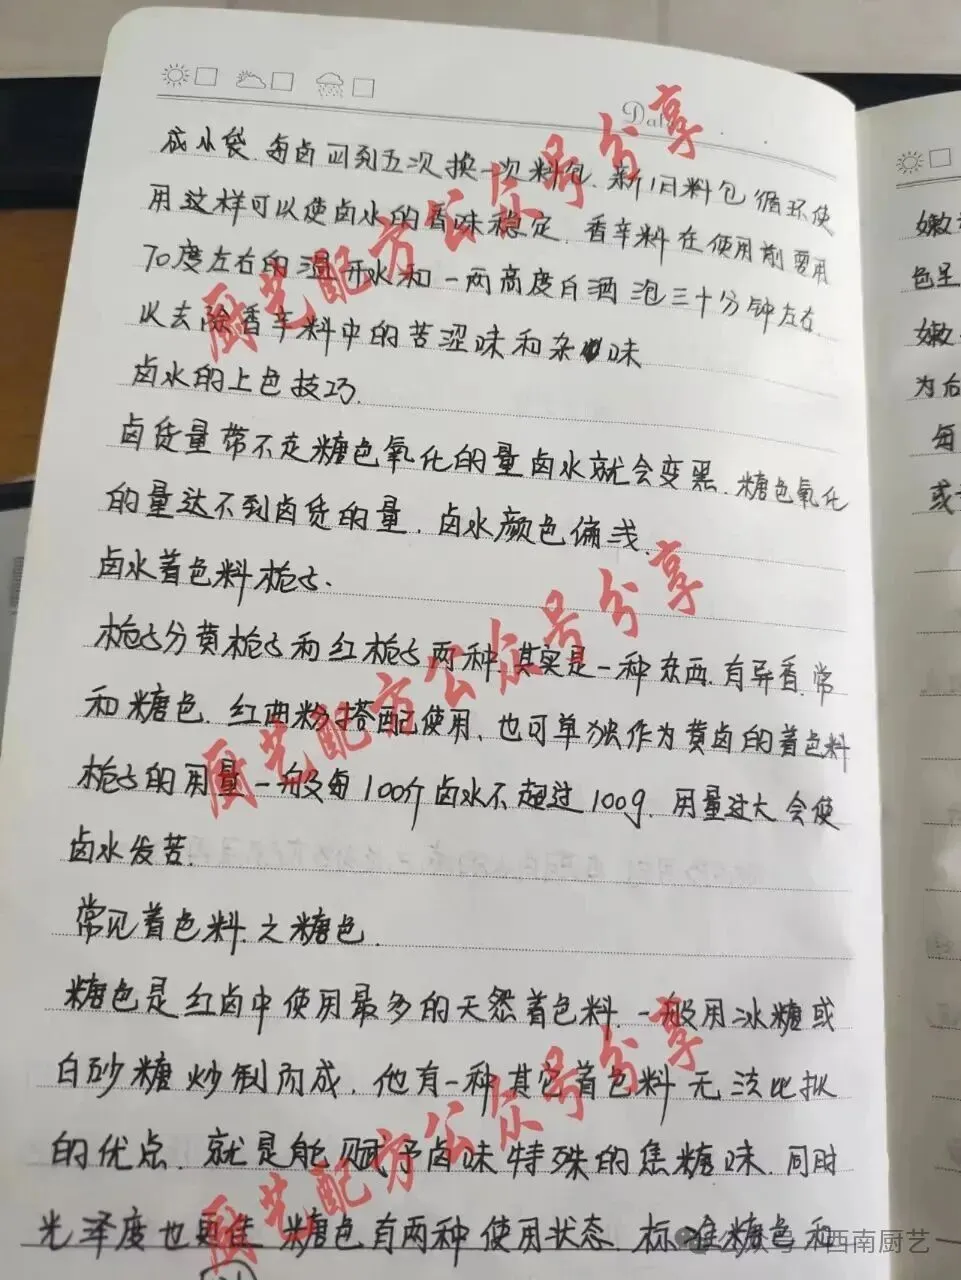 Date
成小袋.每卤四到五次换一次料包.新旧料包循环使
用这样可以使卤水的香味稳定.香辛料在使用前要用
70度左右的温开水和一两高度白酒泡三十分钟左右.
以去除香辛料中的苦涩味和杂味
卤水的上色技巧.
卤货量带不走糖色氧化的量卤水就会变黑.糖色氧化
的量达不到卤货的量.卤水颜色偏浅.
卤水着色料栀子.
栀子分黄栀子和红栀子两种.其实是一种东西.有异香.常
和糖色.红曲粉搭配使用、也可单独作为黄卤的着色料
栀子的用量一般每100斤卤水不超过100g.用量过大会使
卤水发苦.
常见着色料.之糖色.
糖色是红卤中使用最多的天然着色料.一般用冰糖或
白砂糖炒制而成.他有一种其它着色料无法比拟
的优点.就是能赋予卤味特殊的焦糖味.同时
光泽度也更佳 糖色有两种使用状态.标准糖色和
嫩
色呈
嫩
为后
每
或
厨艺配方公众号分享
厨艺配方公众号分享
厨艺配方公众号分享
公众号·西南厨艺